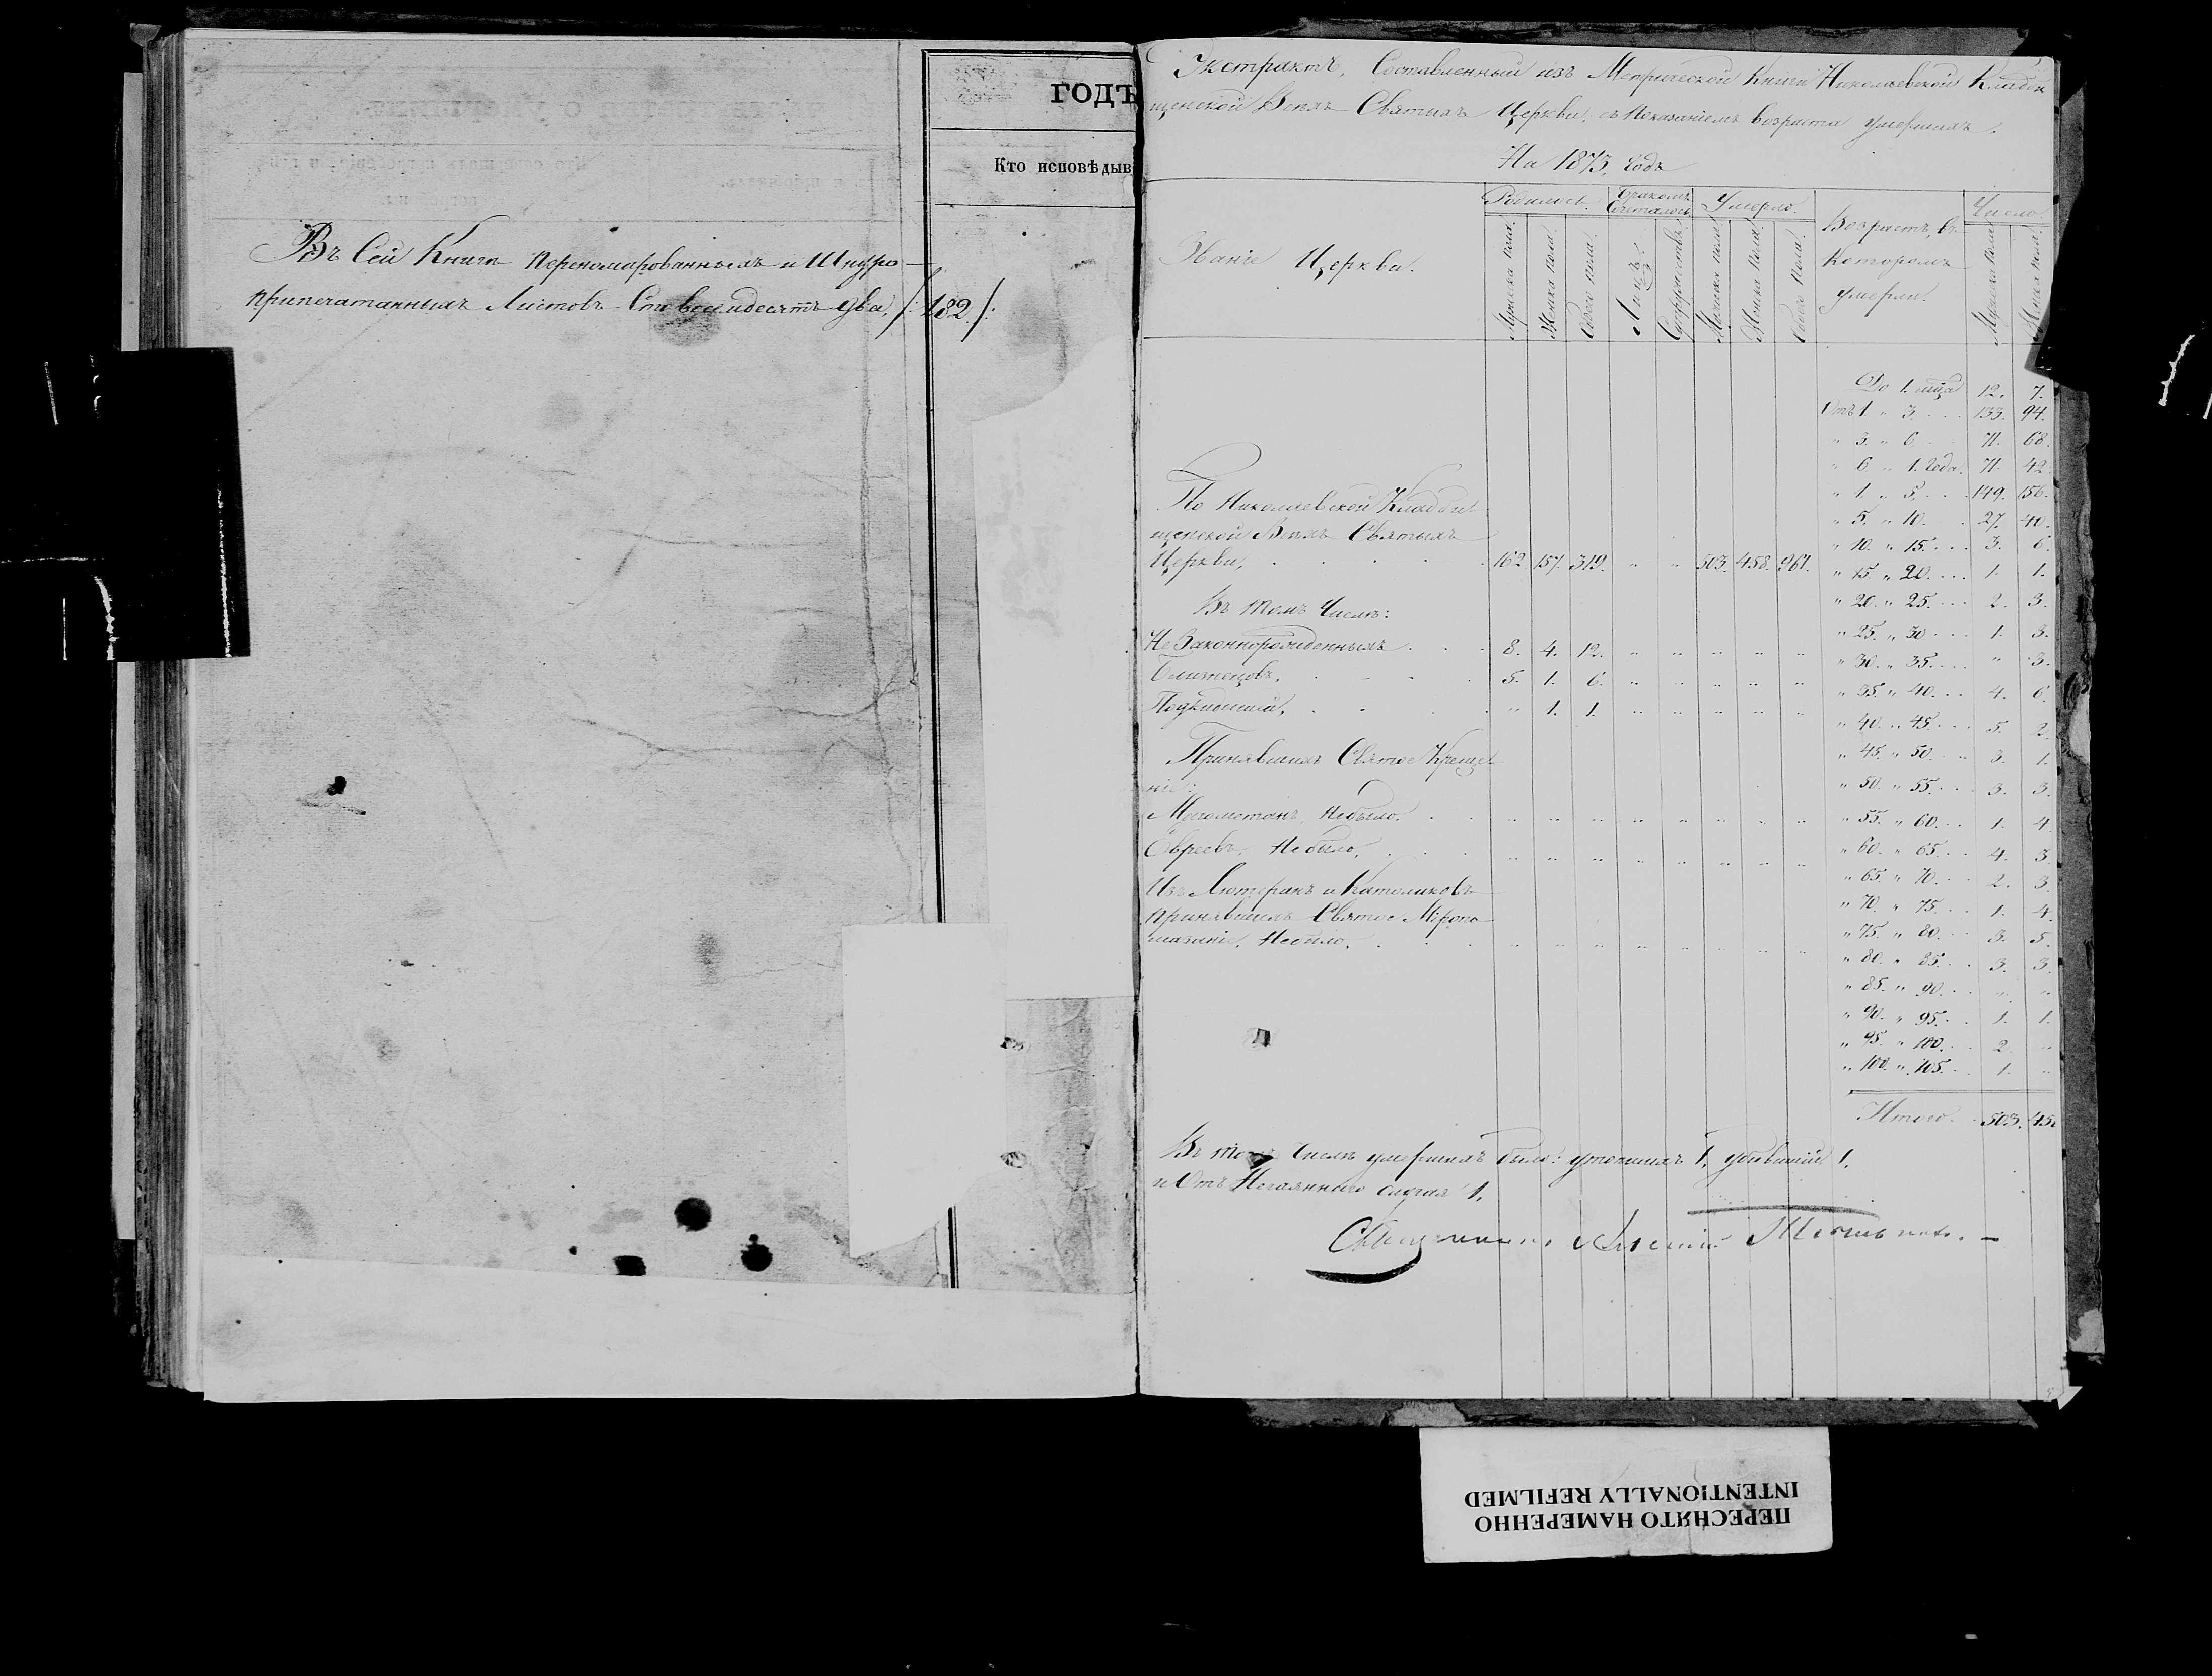 ГОДЪ
Кто исповѣдыв
Въ Сей Книгѣ переномарованныхъ и Шнуро-
припечатанныхъ Листовъ Сто восемдесятъ два, /: 182 /:
Экстрактъ, Составленный изъ Метрической Книги Николаевской Кладби
щенской Всѣхъ Святыхъ Церкви, съ показаніемъ возраста умершихъ.
На 1873, годъ
Званіе Церкви.
Родилось.
Мужеска пола.
Женска пола.
Обоего пола.
Бракомъ Сочеталось
Лицъ.
Супружествъ.
Умерло.
Мужеска пола.
Женска пола.
Обоего пола.
Возрастъ, въ
Которомъ
умерли.
Число
Мужеска пола
Женска пола.
По Николаевской Кладби
щенской Всѣхъ Святыхъ
Церкви, 162 157. 319. " " 503. 458. 961.
Въ томъ Числѣ:
Незаконнорожденныхъ 8. 4. 12. " " " " "
Близнецовъ, 5. 1. 6. " " " " "
Подкидышей, " 1. 1. " " " " "
Принявшихъ Святое Креще
ніе:
Магометанъ, небыло. " " " " " " " "
Евреевъ, Небыло, " " " " " " " "
Изъ Лютеранъ и Католиковъ
принявшихъ Святое Мѵропо
мазаніе, Небыло, " " " " " " " "
До 1. мѣца 12. 7.
Отъ 1. " 3 133. 94.
" 3. " 6 71. 68.
" 6. " 1. Года. 71. 42.
" 1. " 5. 149. 156.
" 5. " 10. 27. 40.
" 10. " 15. 3. 6.
" 15. " 20. 1. 1.
" 20. " 25. 2. 3.
" 25. " 30 1. 3.
" 30. " 35. " 3.
" 35. " 40. 4. 6.
" 40. " 45. 5. 2.
" 45. " 50. 3. 1.
" 50. " 55. 3. 3.
" 55. " 60. 1. 4
" 60. " 65. 4. 3.
" 65. " 70. 2. 3.
" 70. " 75. 1. 4.
" 75. " 80. 3. 5.
" 80. " 85. 3. 3.
" 85. " 90. " "
" 90. " 95. 1. 1.
" 95. " 100. 2. "
" 100. " 105. 1. "
Итого 503. 458
Въ томъ Числѣ умершихъ было: утопшихъ 1, убившій 1,
и Отъ Нечаяннаго случая 1,
Священникъ Алексій
ПЕРЕСНЯТО НАМЕРЕННО
INTENTIONALLY REFILMED